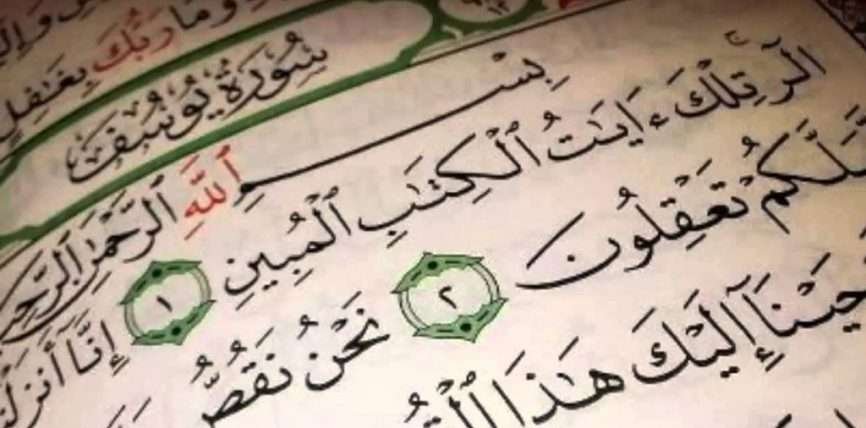 وَمَا رَبُّكَ بِغَٰفِلٍ
سُورَةُ يُوسُفَ
بِسْمِ ٱللَّهِ ٱلرَّحْمَٰنِ ٱلرَّحِ
الٓر تِلْكَ ءَايَٰتُ ٱلْكِتَٰبِ ٱلْمُبِينِ ١ إِنَّآ أَنزَلْ
لَّكُمْ تَعْقِلُونَ ٢ نَحْنُ نَقُصُّ
حَيْنَآ إِلَيْكَ هَٰذَا ٱلْقُ